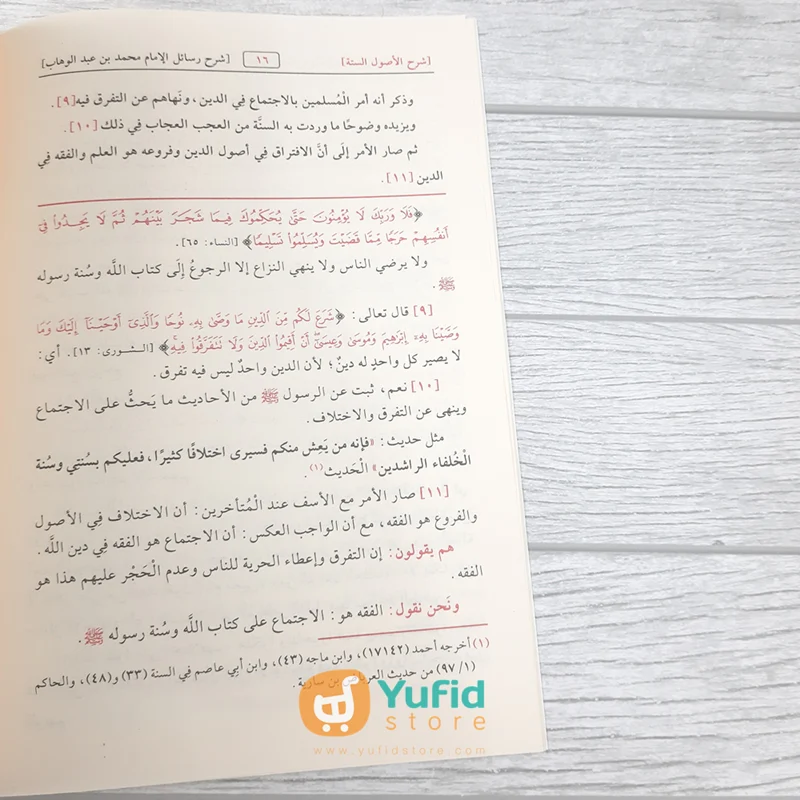 [شرح الأصول الستة] ١٦ [شرح رسائل الإمام محمد بن عبد الوهاب]
وذكر أنه أمر الْمُسلمين بالاجتماع فِي الدين، ونَهاهم عن التفرق فيه[٩].
ويزيده وضوحًا ما وردت به السنَّة من العجب العجاب فِي ذلك [١٠].
ثم صار الأمر إلَى أنَّ الافتراق فِي أصول الدين وفروعه هو العلم والفقه فِي
الدين [١١].
﴿فَلَا وَرَبِّكَ لَا يُؤْمِنُونَ حَتَّىٰ يُحَكِّمُوكَ فِيمَا شَجَرَ بَيْنَهُمْ ثُمَّ لَا يَجِدُوا۟ فِىٓ
أَنفُسِهِمْ حَرَجًا مِّمَّا قَضَيْتَ وَيُسَلِّمُوا۟ تَسْلِيمًا﴾ [النساء: ٦٥].
ولا يرضي الناس ولا ينهي النزاع إلا الرجوعُ إلَى كتاب اللَّه وسُنة رسوله
ﷺ.
[٩] قال تعالى: ﴿شَرَعَ لَكُم مِّنَ ٱلدِّينِ مَا وَصَّىٰ بِهِۦ نُوحًا وَٱلَّذِىٓ أَوْحَيْنَآ إِلَيْكَ وَمَا
وَصَّيْنَا بِهِۦٓ إِبْرَٰهِيمَ وَمُوسَىٰ وَعِيسَىٰٓ أَنْ أَقِيمُوا۟ ٱلدِّينَ وَلَا تَتَفَرَّقُوا۟ فِيهِ﴾ [الشورى: ١٣]. أي:
لا يصير كل واحدٍ له دينٌ؛ لأن الدين واحدٌ ليس فيه تفرق.
[١٠] نعم، ثبت عن الرسول ﷺ من الأحاديث ما يَحثُّ على الاجتماع
وينهى عن التفرق والاختلاف.
مثل حديث: «فإنه من يَعِش منكم فسيرى اختلافًا كثيرًا، فعليكم بسُنتي وسُنة
الْخُلفاء الراشدين» الْحَديث(١).
[١١] صار الأمر مع الأسف عند الْمُتأخرين: أن الاختلاف فِي الأصول
والفروع هو الفقه، مع أن الواجب العكس: أن الاجتماع هو الفقه فِي دين اللَّه.
هم يقولون: إن التفرق وإعطاء الحرية للناس وعدم الْحَجْر عليهم هذا هو
الفقه.
ونَحن نقول: الفقه هو: الاجتماع على كتاب اللَّه وسُنة رسوله ﷺ.
(١) أخرجه أحمد (١٧١٤٢)، وابن ماجه (٤٣)، وابن أبِي عاصم في السنة (٣٣) و(٤٨)، والحاكم
(١/ ٩٧) من حديث العرباض بن سارية.
Yufid
store
www.yufidstore.com